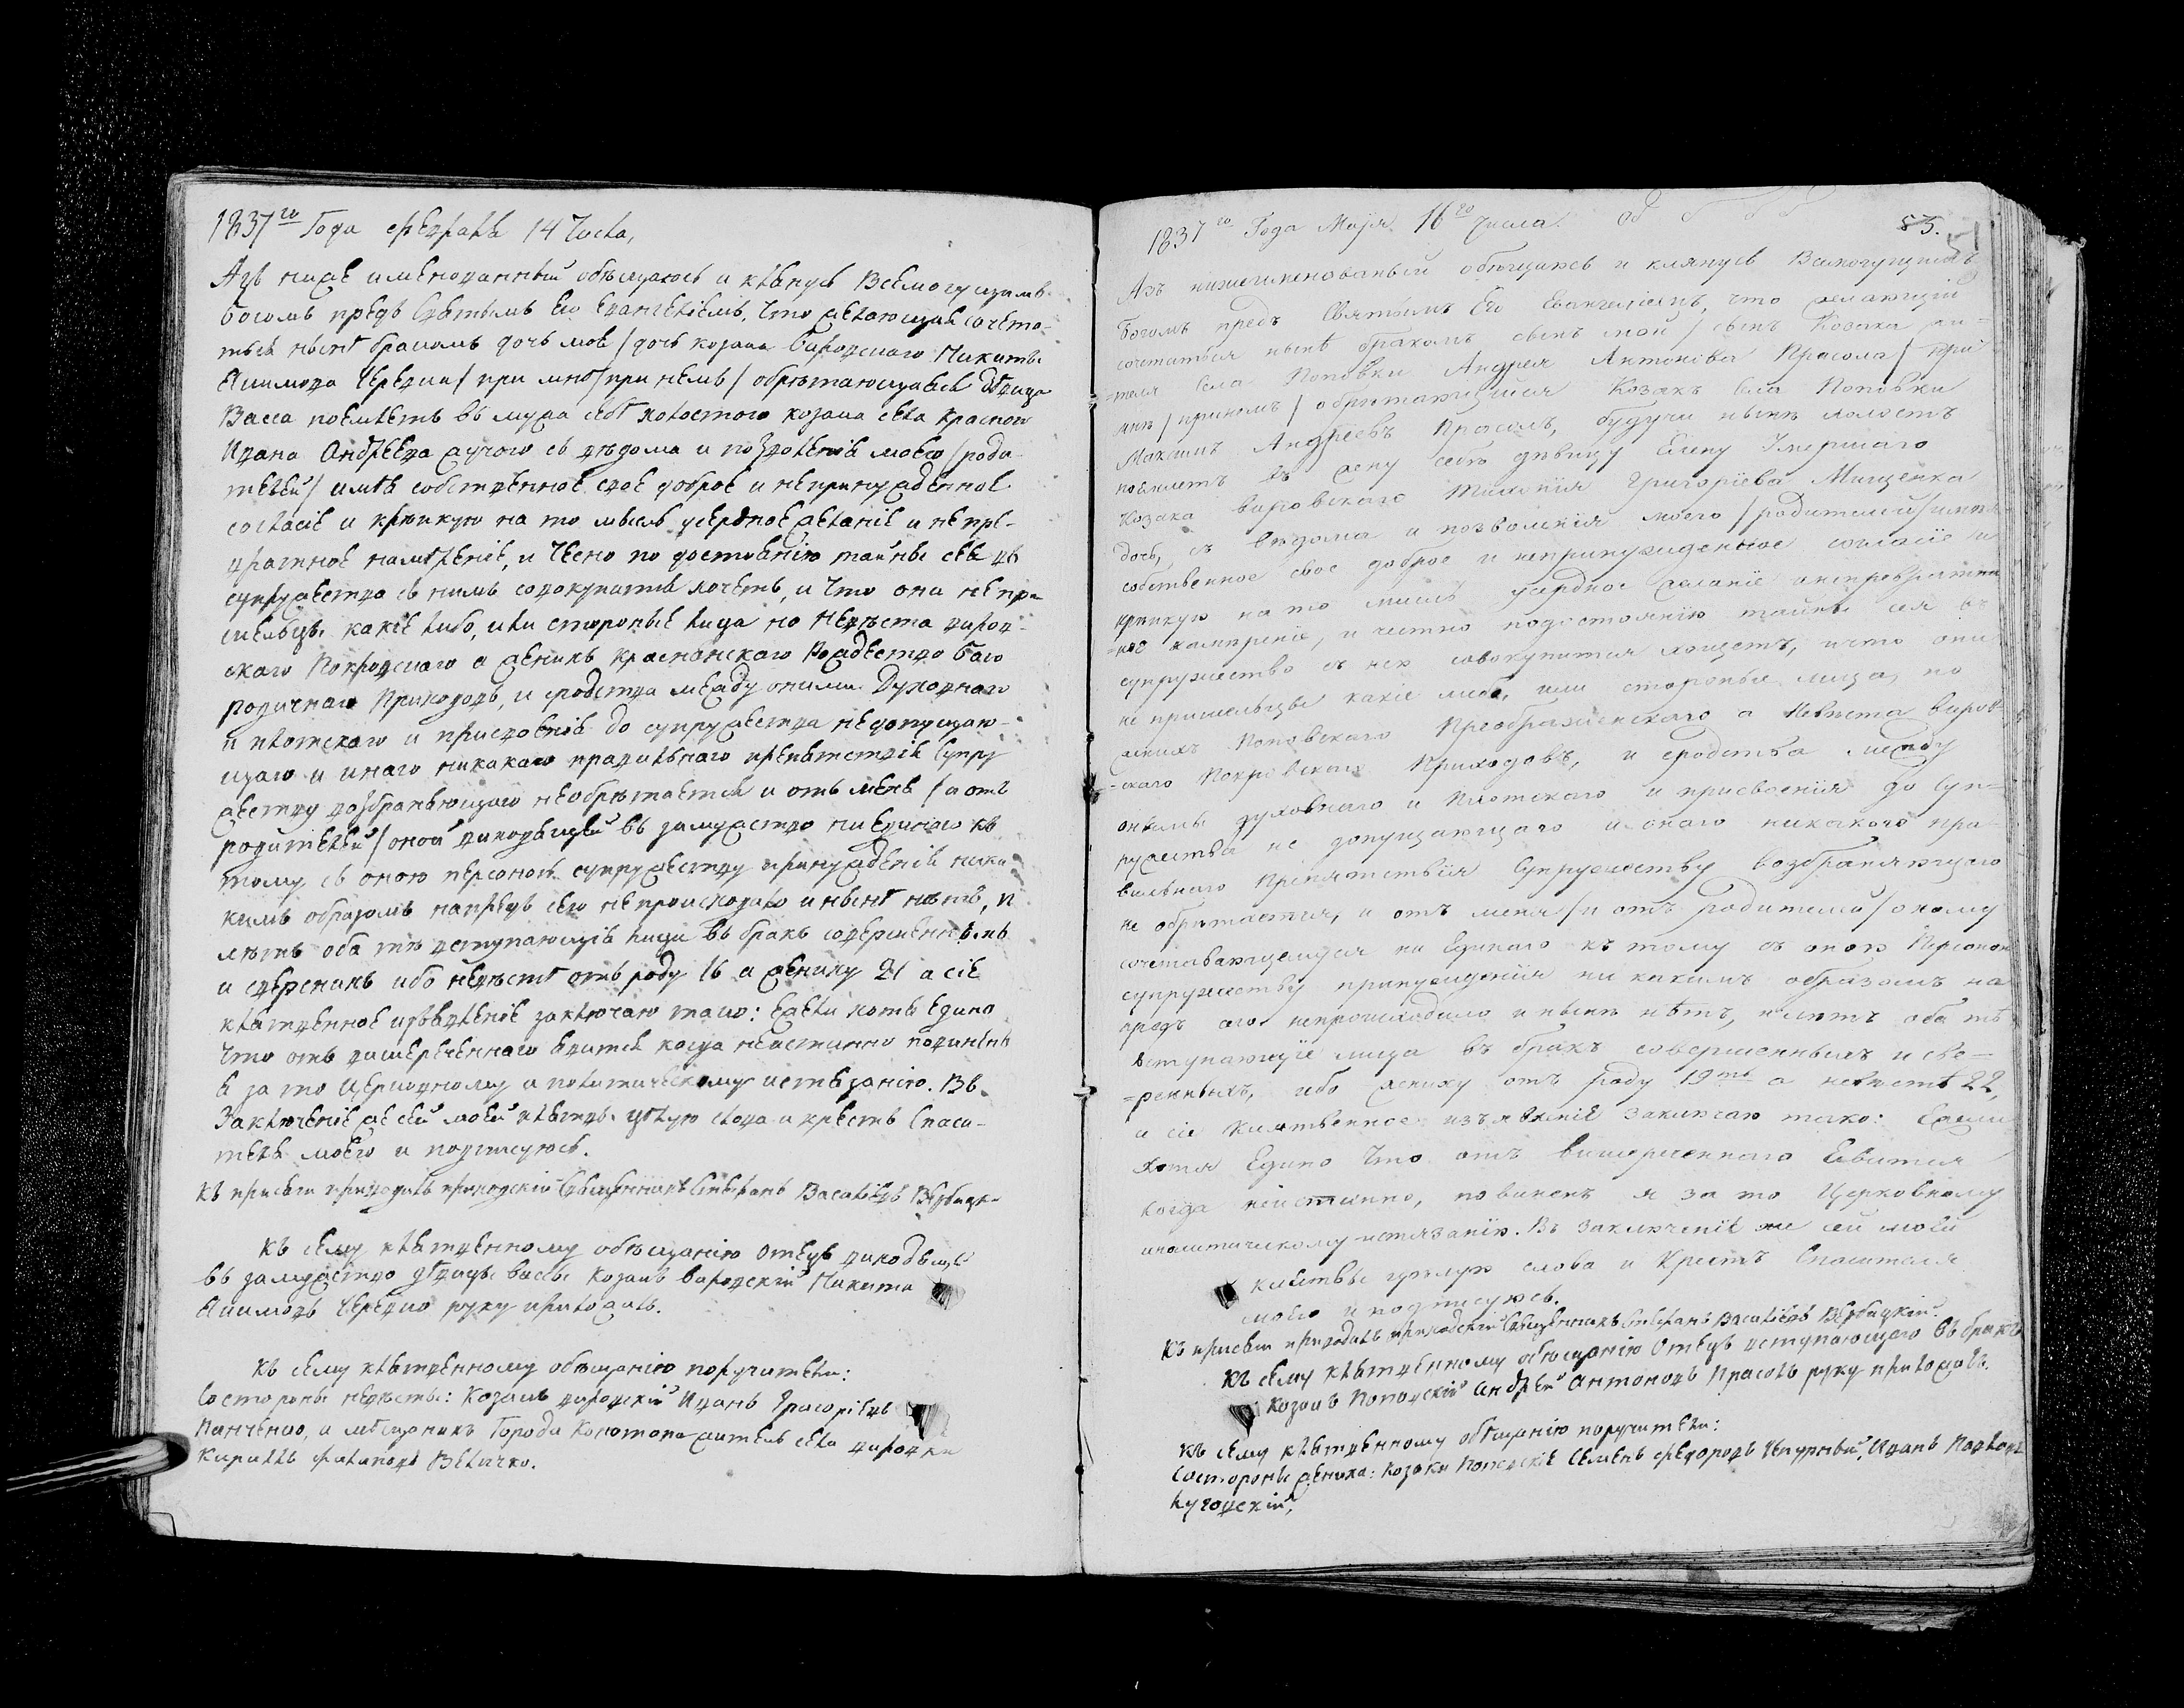 1837го Года февраля 14 Числа,
Азъ ниже именованный обѣщаюсь и клянусь Всемогущимъ
Богомъ предъ Святымъ Его Евангелiемъ, что желающая сочета-
ться нынѣ бракомъ дочь моя / дочь козака вировскаго Никиты
Якимова Чередни / при мнѣ / при немъ / обрѣтающаяся дѣвица
Васса поемлетъ въ мужа себѣ холостого козака села Красного
Ивана Андреева с вѣдома и позволенiя моего / роди
телей / имѣя собственное свое доброе и непринужденное
согласiе и крѣпкую на то мысль усердное желанiе и непре-
вратное намѣренiе, и чесно по достоянiю тайны сея въ
супружество съ нимъ совокупится хочетъ, и что они не при
шельцы какiе либо, или сторонные лица но невѣста виров-
скаго Покровскаго а женихъ Краснянскаго Рождество Бого
родичнаго Приходовъ, и сродства между оними Духовнаго
и плотскаго и присвоенiя до супружества недопущаю-
щаго и инаго никакаго правильнаго препятствiя Супру
жеству возбраняющаго необрѣтается и отъ мене / а отъ
родителей / оной виходящей въ замужество ни единаго къ
тому съ оною персоной супружеству принужденiя ника
кимъ образомъ напредъ сего не происходило и нынѣ нѣтъ, и
лѣтъ оба тѣ вступающiя лица въ бракъ совершеннихъ
и сверснихъ ибо невѣстѣ отъ роду 16 а жениху 21 а сiе
клятвенное изъявленiе заключаю тако: Ежели хотя Едино
что отъ вишереченнаго явится когда неистинно повиненъ
я за то Церковному и политическому истязанiю. Въ
Заключенiе же сей моей клятвы цѣлую слова и крестъ Спаси-
теля моего и подписуюсь.
Къ присяги приводилъ приходскiй Священникъ Стефанъ Василiевъ Вербицк
Къ сему клятвенному обѣщанiю отецъ виходящей
въ замужество дѣвицы Вассы Козакъ вировскiй Никита
Якимовъ Чередня руку приложилъ.
Къ сему клятвенному обѣщанiю поручители:
Состороны невѣсты: Козакъ вировскiй Иванъ Григорiевъ
Панченко, и мѣщанинъ Города Конотопа житель села вировки
Кириллъ Филиповъ Величко.
1837го Года Маiя 16го Числа.
85.
Азъ нижеименованный обѣщаюсь и клянусь Всемогущимъ
Богомъ предъ Святымъ Его Евангелiемъ, что желающiй
сочетаться нынѣ бракомъ сынъ мой / сынъ Козака жи-
теля села Поповки Андрея Антонiева Прасола / при
мнѣ / приномъ / обрѣтающiйся Козакъ села Поповки
Максимъ Андрiевъ Прасолъ, будучи нынѣ холостъ
поемлетъ въ жену себѣ дѣвицу Елену Умершаго
Козака вировскаго Григорiева Мищенка
дочь, съ вѣдома и позволенiя моего / родителей / имѣя
собственное свое доброе и непринужденное согласiе и
крѣпкую на то мысль усердное желанiе и непревратни
-ное намѣренiе, и честно подостоянiю тайны сея въ
супружество съ нею совокупится хощетъ, и что они
не пришельцы какiе либо, или сторонные лица, но
женихъ Поповскаго Преображенскаго а Невѣста виров-
-скаго Покровскаго Приходовъ, и сродства между
онымы духовнаго и Плотскаго и присвоенiя до Суп-
ружества не допущающаго и онаго никакого пра-
вильнаго препятствiя Супружеству возбраняющаго
не обрѣтается, и отъ меня / и отъ родителей / оному
сочетавающемуся ни Единаго къ тому съ оною Персоною
супружеству принужденiя ни какимъ образомъ на
предъ сего непроисходило и нынѣ нѣтъ, и лѣтъ оба тѣ
вступающiе лица въ бракъ совершенныхъ и све-
-ренныхъ, ибо жениху отъ роду 19ть а невѣстѣ 22,
и сiе клятвенное изъявленiе заключаю тако: Ежели
хотя Едино что отъ вишереченнаго Евится
когда неистинно, повиненъ я за то Церковному
иполитическому истязанiю. Въ заключенiе же сей моей
клятвы цѣлую слова и Крестъ Спасителя
моего и подписуюсь.
Къ присяги приводилъ приходскiй Священникъ Стефанъ Василiевъ Вербицкiй
Къ сему клятвенному обѣщанiю Отецъ вступающаго въ бракъ
Козакъ Поповскiй Андрей Антоновъ Прасолъ руку приложилъ.
Къ сему клятвенному обѣщанiю поручители:
Состороны жениха: Козаки Поповскiе Семенъ Федоровъ Чепурный, Иванъ Павловъ